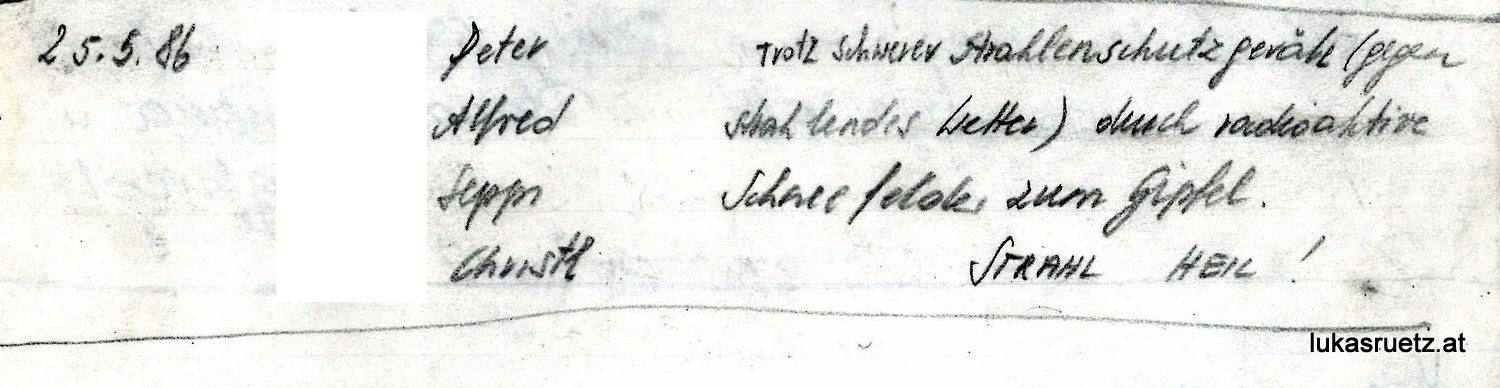 25.5.86 Peter trotz schwerer Strahlenschutzgeräte (gegen
Alfred strahlendes Wetter) durch radioaktive
Seppi Schneefelder zum Gipfel.
Christl STRAHL HEIL!
lukasruetz.at